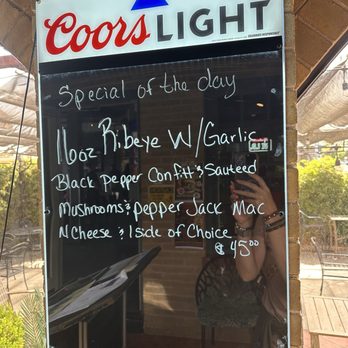 Coors LIGHT
Special of the day
16oz Ribeye W/Garlic
Black Pepper Confit & Sauteed
Mushrooms & Pepper Jack Mac
N Cheese & 1 side of Choice
$45.00